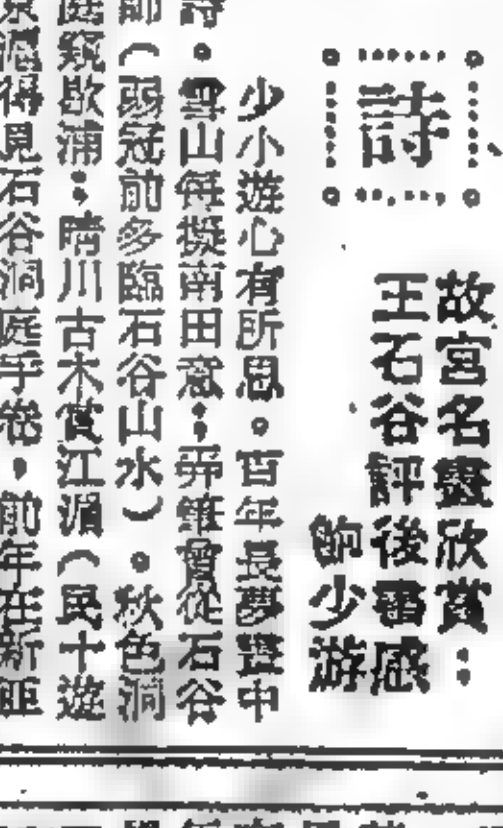 詩
故宮名畫欣賞：
王石谷評後書感
少游
少小遊心有所思。百年長夢畫中
詩。雪山每擬南田意；弄雛曾從石谷
師（弱冠前多臨石谷山水）。秋色洞
庭窺歇浦；晴川古木賞江湄（民十遊
京滬得見石谷洞庭手卷，前年在新